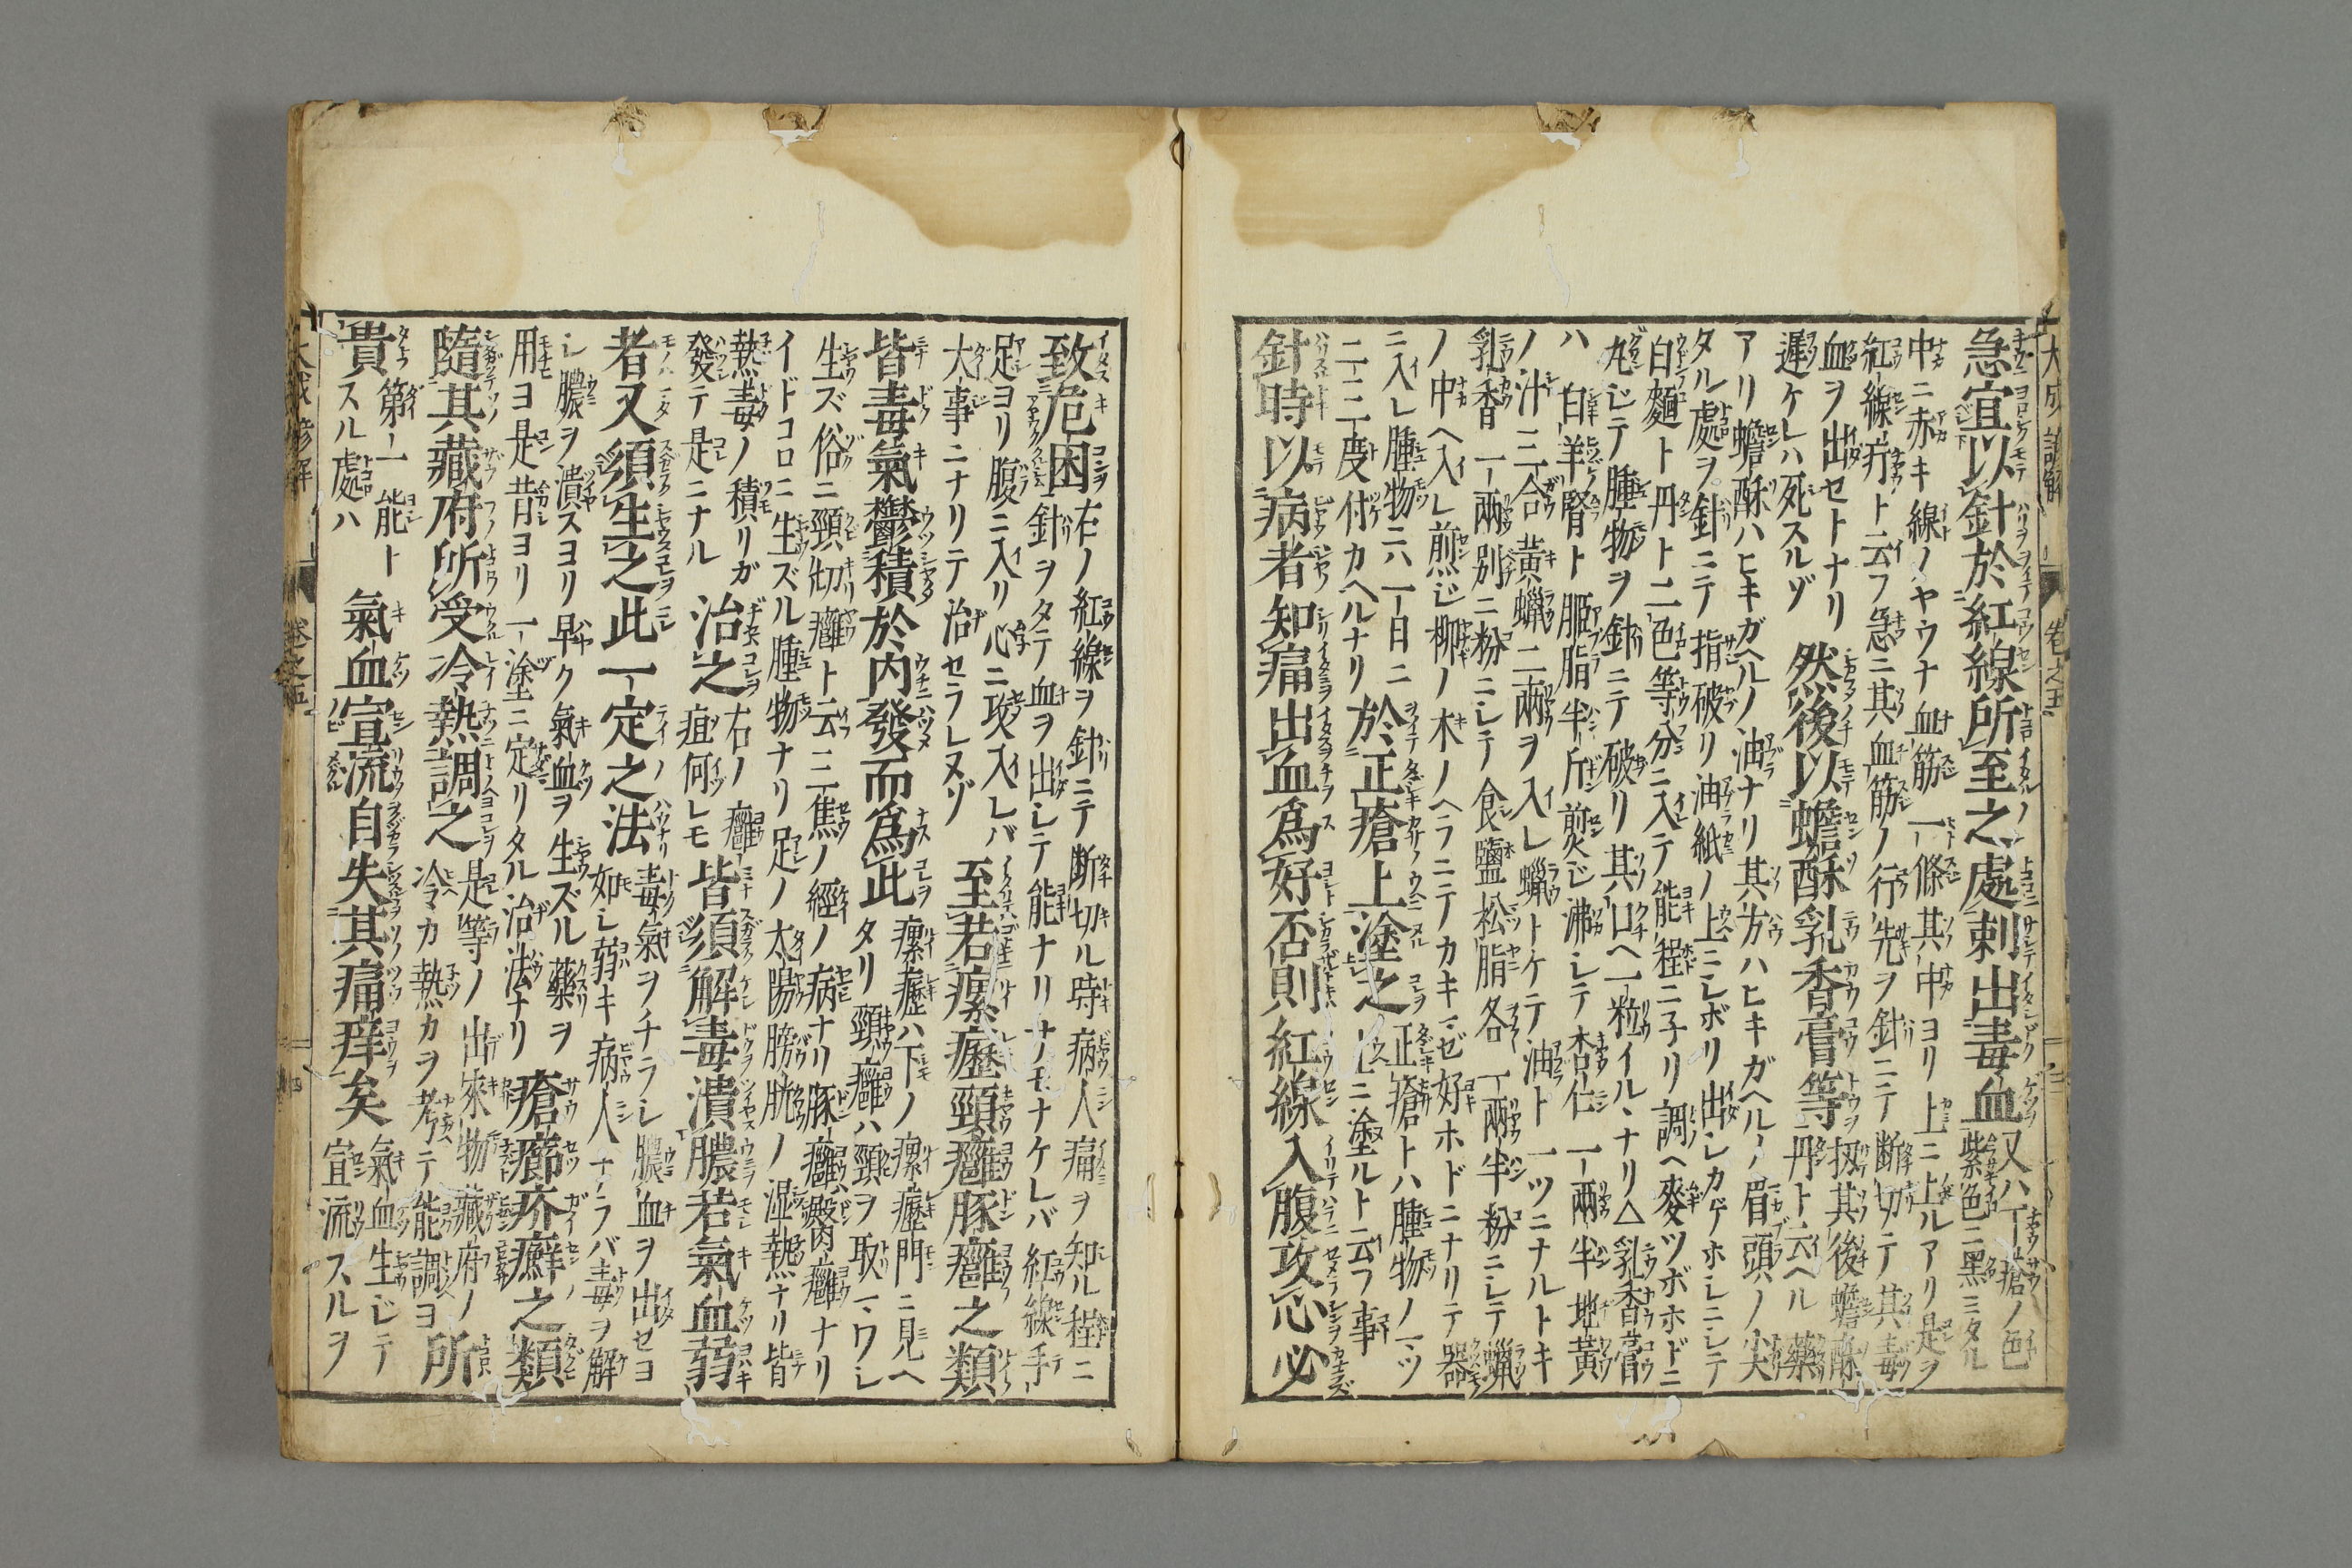 急宜以針於紅線所至之處刺出毒血
又ハ丁瘡ノ色
紫色ニ黒ミタル
中ニ赤キ線ノヤウナ血筋一條其中ヨリ上ニ上ルアリ是ヲ
紅線疔ト云フ急ニ其血筋ノ行先ヲ針ニテ断切テ其毒
血ヲ出セトナリ
遅ケレハ死スルゾ
然後以蟾酥乳香膏等
扨其後蟾酥
丹ト云ヘル藥
アリ蟾酥ハヒキガヘルノ油ナリ其方ハヒキガヘルノ眉頭ノ尖
タル處ヲ針ニテ指破リ油紙ノ上ニシボリ出シカゲホシニシテ
白麵ト丹ト二色等分ニ入テ能程ニ子リ調ヘ麥ツボホドニ
丸ジテ腫物ヲ針ニテ破リ其口ヘ一粒イルヽナリ△乳香膏
ハ白羊腎ト脂半斤煎ジ沸シテ杏仁一兩半地黄
ノ汁三合黄蠟二兩ヲ入レ蠟トケテ油ト一ツニナルトキ
乳香一兩別ニ粉ニシテ食鹽松脂各一兩半粉ニシテ蠟
ノ中ヘ入レ煎ジ柳ノ木ノヘラニテカキマゼ好ホドニナリテ器
ニ入レ腫物ニハ一日ニ
二三度付カヘルナリ
於正瘡上塗之
正瘡トハ腫物ノ一ツ
上ニ塗ルト云フ事
針時以病者知痛出血為好否則紅線入腹攻心必
致危困
右ノ紅線ヲ針ニテ断切ル時病人痛ヲ知ル程ニ
針ヲタテ血ヲ出シテ能ナリサモナケレバ紅線手
足ヨリ腹ニ入リ心ニ攻入レバ
大事ニナリテ治セラレヌゾ
至若瘰癧頸癰豚癰之類
皆毒氣鬱積於内發而為此
瘰癧ハ下ノ瘰癧門ニ見ヘ
タリ頸癰ハ頸ヲ取マワシ
生ズ俗ニ頸切癰ト云三焦ノ經ノ病ナリ豚癰ハ臀癰ナリ
イドコロニ生ズル腫物ナリ足ノ太陽膀胱ノ湿熱ナリ皆
熱毒ノ積リガ
發テ是ニナル
治之
右ノ癰
疽何レモ
皆須解毒潰膿若氣血弱
者又須生之此一定之法
毒氣ヲチラシ膿血ヲ出セヨ
如シ弱キ病人ナラバ毒ヲ解
シ膿ヲ潰スヨリ早ク氣血ヲ生ズル藥ヲ
用ヨ是昔ヨリ一塗ニ定リタル治法ナリ
瘡癤疥癬之類
隨其藏府所受冷熱調之
是等ノ出來物藏府ノ
冷カ熱カヲ考テ能調ヨ
所
貴
第一能ト
スル處ハ
氣血宣流自失其痛痒矣
氣血生ジテ
宣流スルヲ